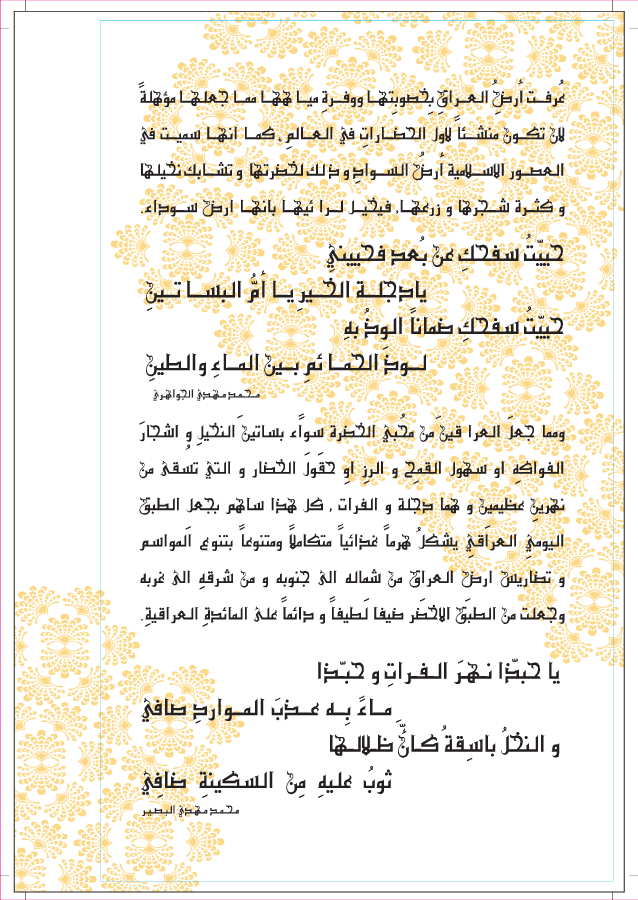 عُرفت أرضُ العراقِ بِخصوبِتها ووفرةِ مياهها مما جعلها مؤهلةً
لان تكون منشئاً لاول الحضاراتِ في العالمِ ، كما انها سميت في
العصور الاسلامية أرضُ السوادِ و ذلك لخضرتها و تشابك نخيلها
و كثرة شجرها و زرعها، فيخيل لرائيها بانها ارض سوداء.
حييّتُ سفحكِ عن بُعدٍ فحييني
يادجلة الخيرِ يا أمُّ البساتينِ
حييّتُ سفحكِ ضماناً الوذُ بهِ
لوذَ الحمائمِ بين الماءِ والطينِ
محمد مهدي الجواهري
ومما جعلَ العراقينَ من مُحبي الخضرة سواًء بساتينَ النخيلِ و اشجارَ
الفواكهِ او سهول القمحِ و الرزِ اوِ حقولَ الخضار و التي تُسقى من
نهرينِ عظيمين و هما دجلة و الفرات ، كل هذا ساهم بجعل الطبق
اليومي العراقي يشكلُ هرماً غذائياً متكاملاً ومتنوعاً بتنوع المواسم
و تضاريسَ ارض العراق من شماله الى جنوبه و من شرقهِ الى غربه
وجعلت من الطبَق الاخضَر ضيفا لَطيفاً و دائماً على المائدةِ العراقيةِ.
يا حبّذا نهرَ الفراتِ و حبّذا
ماءً بِه عذبَ المواردِ صافي
و النخلُ باسِقةُ كانَّ ظلالها
ثوبُ عليهِ مِن السكينةِ ضافِي
محمد مهدي البصير